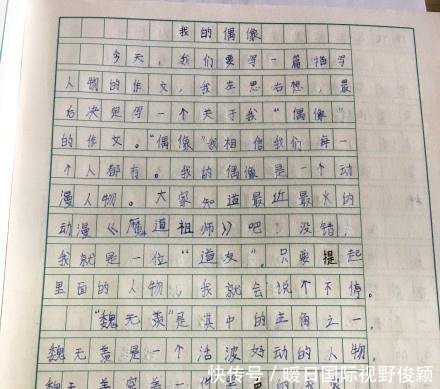 我的偶像
今天，我们要写一篇描写
人物的作文，我左思右想，最
后决定写一个关于我“偶像”
的作文。“偶像”我相信我们每一
个人都有。我的偶像是一个动
漫人物。大家知道最近最火的
动漫《魔道祖师》吧！没错，
我就是一位“道友”。只要提起
里面的人物，我就会说个不停。
“魏无羡”是其中的主角之一，
魏无羡是一个活波好动的人物，
快传号／暖日国际视野俊颖